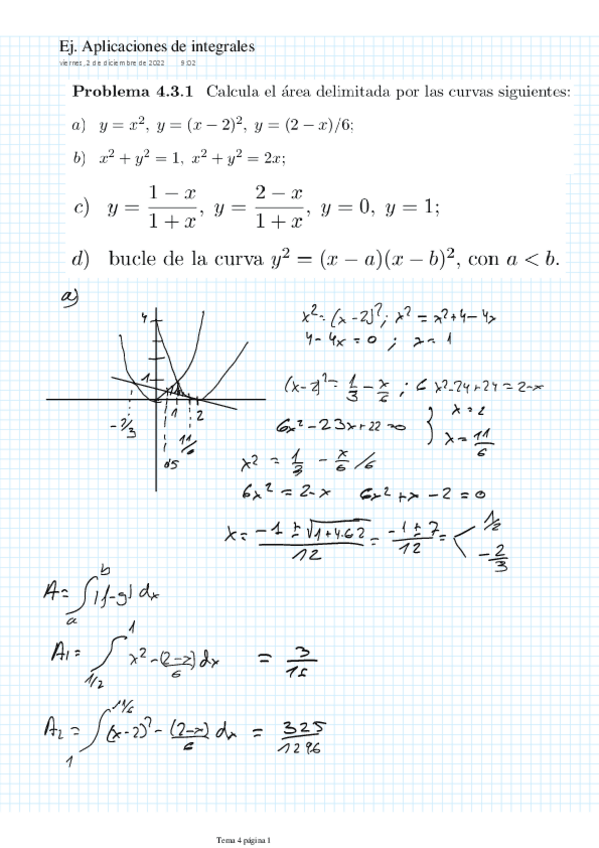 Ej. Aplicaciones de integrales
viernes, 2 de diciembre de 2022 9:02
Problema 4.3.1 Calcula el área delimitada por las curvas siguientes:
a) y = x², y = (x − 2)², y = (2 − x)/6;
b) x² + y² = 1, x² + y² = 2x;
c) y = (1 − x)/(1 + x), y = (2 − x)/(1 + x), y = 0, y = 1;
d) bucle de la curva y² = (x − a)(x − b)², con a < b.
a)
4
1
-2/3
1
2
11/6
x² = (x-2)²; x² = x²+4-4x
4-4x=0 ; x=1
(x-2)² = 1/3 - x/6 ; 6x²-24+24 = 2-x
6x²-23x+22=0 } x=2
x = 11/6
x² = 1/3 - x/6 /6
6x² = 2-x 6x²+x-2=0
x = (-1 ± √(1+4·6·2))/12 = (-1 ± 7)/12 = < 1/2
-2/3
A = ∫_a^b |f-g| dx
A₁ = ∫_{1/2}^1 x² - (2-x)/6 dx = 3/16
A₂ = ∫_1^{11/6} (x-2)² - (2-x)/6 dx = 325/1296
Tema 4 página 1